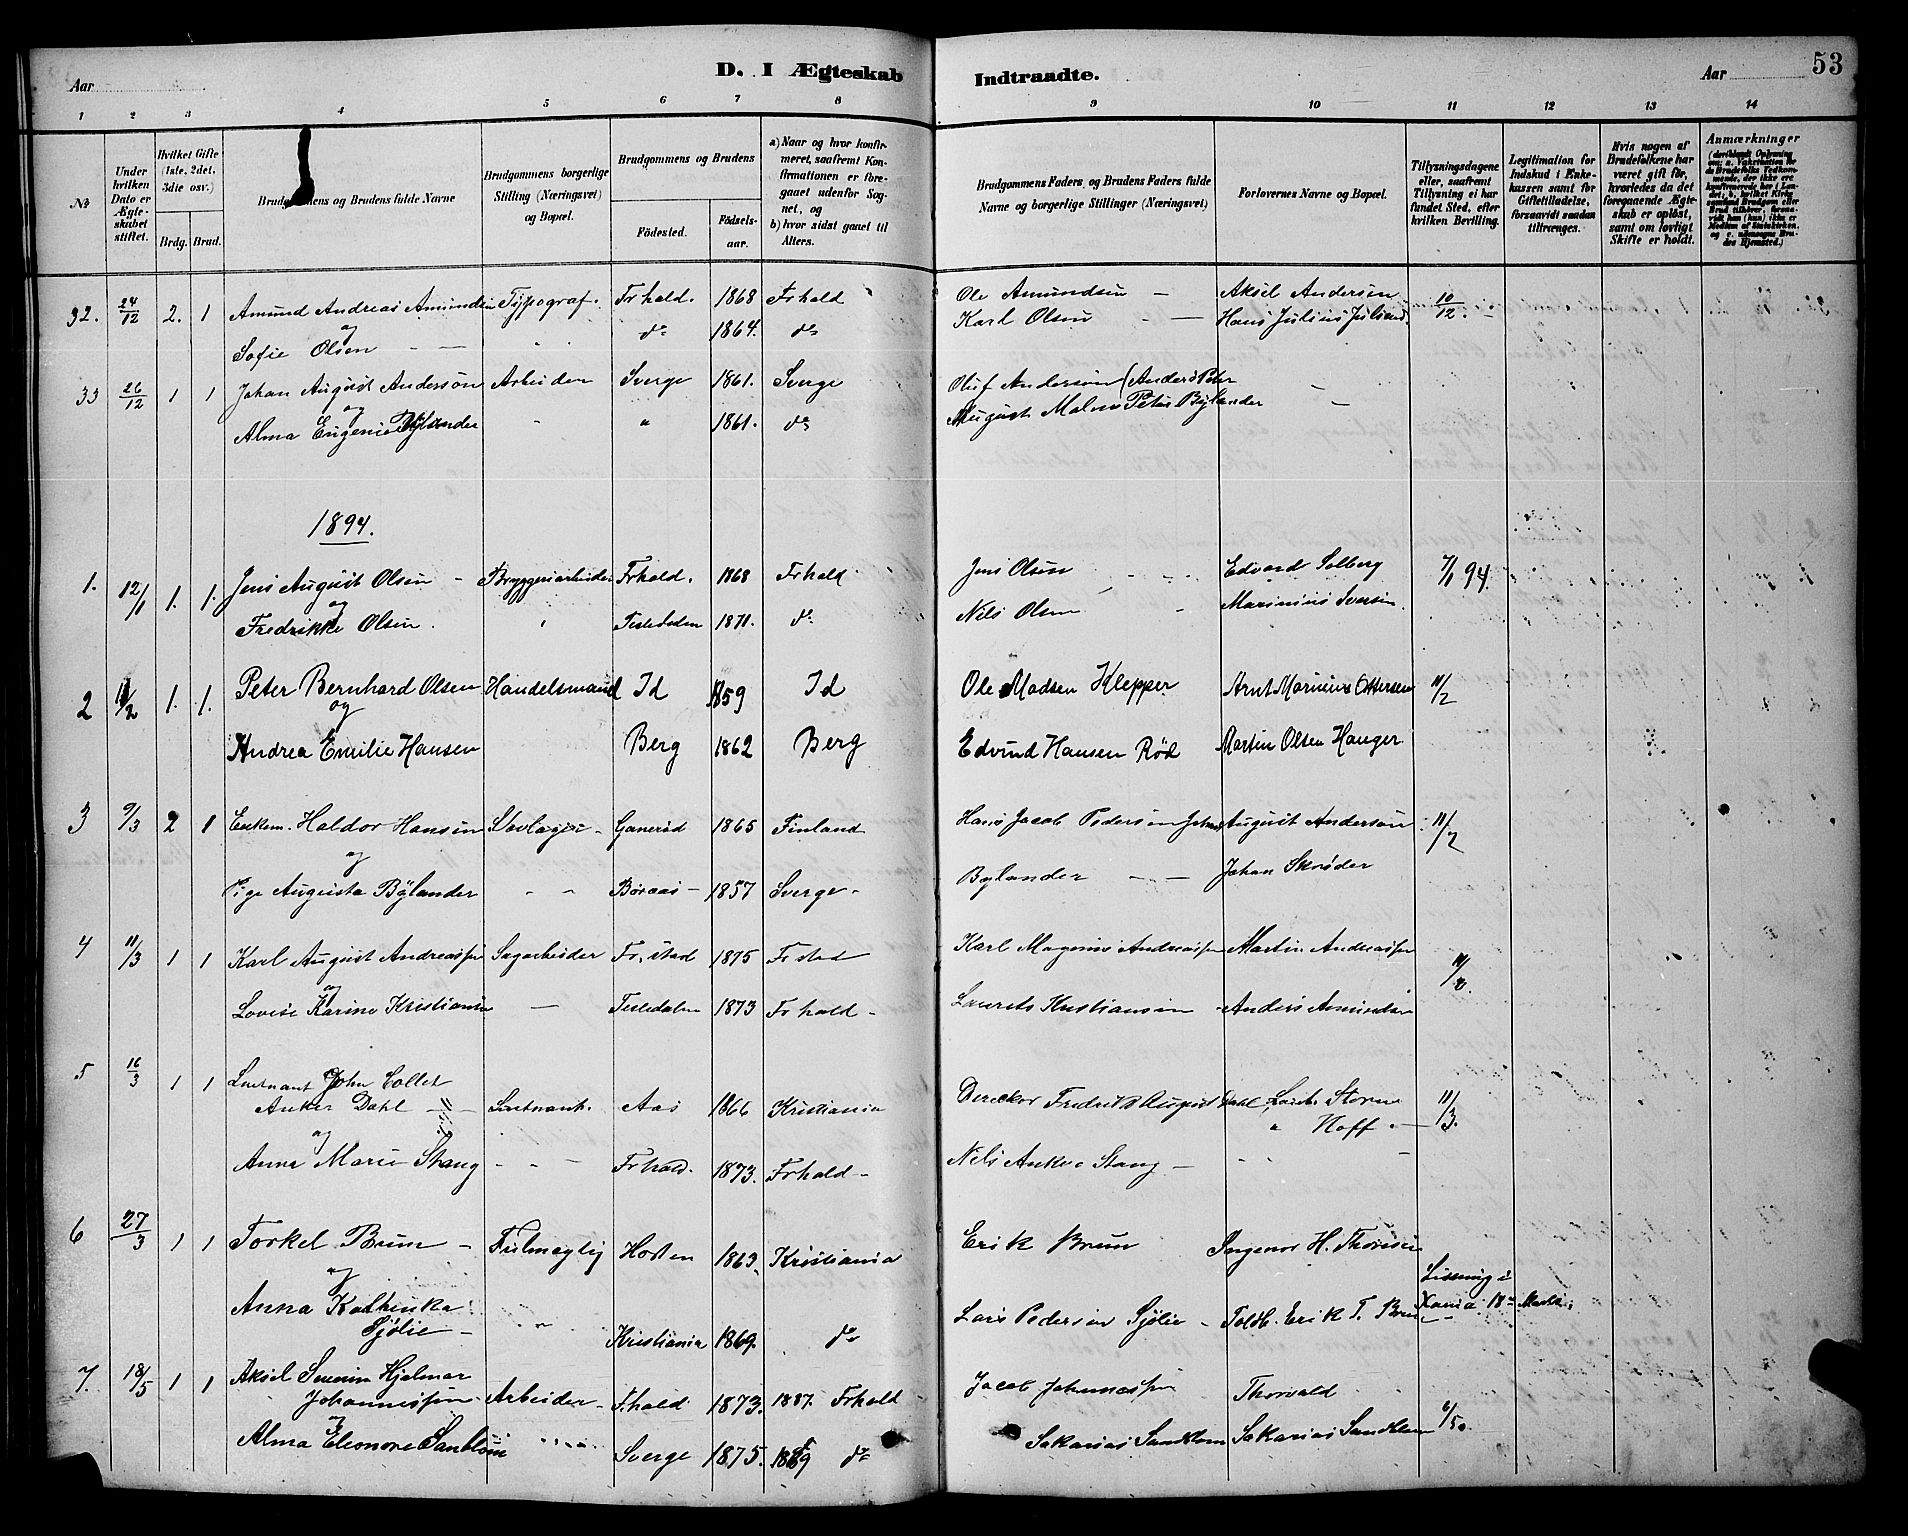 D. I Ægteskab Indtraadte.
Aar
Aar 53
1 2 3 4 5 6 7 8 9 10 11 12 13 14
No
Under hvilken Dato er Ægteskabet stiftet.
Hvilket Gifte (1ste, 2det, 3die osv.)
Brdg. Brud.
Brudgommens og Brudens fulde Navne
Brudgommens borgerlige Stilling (Næringsvei) og Bopæl.
Brudgommens og Brudens
Fødested. Fødselsaar.
a) Naar og hvor konfirmeret, saafremt Konfirmationen er foregaaet udenfor Sognet, og
b) hvor sidst gaaet til Alters.
Brudgommens Faders og Brudens Faders fulde Navne og borgerlige Stillinger (Næringsvei)
Forlovernes Navne og Bopæl.
Tillysningsdagene eller, saafremt Tillysning ei har fundet Sted, efter hvilken Bevilling.
Legitimation for Indskud i Enkekassen samt for Giftetilladelse, forsaavidt saadan tiltrænges.
Hvis nogen af Brudefolkene har været gift før, hvorledes da det foregaaende Ægteskab er opløst, samt om lovligt Skifte er holdt.
Anmærkninger
32. 24/12 2. 1 Amund Andreas Amundsen Typograf. Frhald. 1868 Frhald Ole Amundsen — Aksel Andersen 10/12
og
Sofie Olsen — do 1864. do Karl Olsen — Hans Julius Julsend.
33 26/12 1 1 Johan August Anderson Arbeider Sverge 1861. Sverge Oluf Anderson (Anders Peter —
og
Alma Eugenie Bylander " 1861. do August Malm Petus Bylander —
1894.
1. 12/1 1. 1. Jens August Olsen — Bryggeriarbeider Frhald. 1868 Frhald Jens Olsen Edvard Solberg 7/1 94.
og
Fredrikke Olsen. Tistedalen 1871. do Nils Olsen Marinius Iversen.
2 11/2 1. 1. Peter Bernhard Olsen Handelsmand Id 1859 Id Ole Madsen Klepper Arnt Marinius Ottersen 11/2
og
Andrea Emilie Hansen Berg 1862 Berg Edvind Hansen Rød Martin Olsen Hauger
3 9/3 2 1 Enkem. Haldor Hansen 1865 Finland Hans Jacob Pedersen August Anderson 11/2
og
Pige Augusta Bylander 1857 Sverge Bylander — Johan Skrøder
4 11/3 1 1 Karl August Andreassen Sagarbeider Fr.stad 1875 Frstad Karl Magnus Andreassen Martin Andreassen 11/2.
og
Lovise Karine Kristiansen — Tistedalen 1873 Frhald — Laurets Kristiansen Anders Amundsen
5 16/3 1 1 Leutnant John Collet
Anker Dahl — Leutnant. Aas 1866 Kristiania Direktør Fredrik August Dahl Leut. Storm 11/3.
og " Hoff
Anna Marie Stang Frhald. 1873. Frhald — Nils Anker Stang —
6 27/3 1 1 Torkel Brun — Fulmægtig Horten 1863. Kristiania Erik Brun Ingeniør H. Thoresen
og Lissning i
Anna Kathinka Lars Pedersen Sjølie — Toldb. Erik T. Brun Xania 18de Marts.
Sjølie — Kristiania 1869. do
7. 18/5 1 1 Aksel Severin Hjalmar
Johannessen Arbeider — F.hald 1873. 1887. Frhald Jacob Johannessen Thorvald
og
Alma Eleonore Sanblom Sverge 1875. 1889 do Sakarias Sandblom Sakarias Sandblom 6/5.